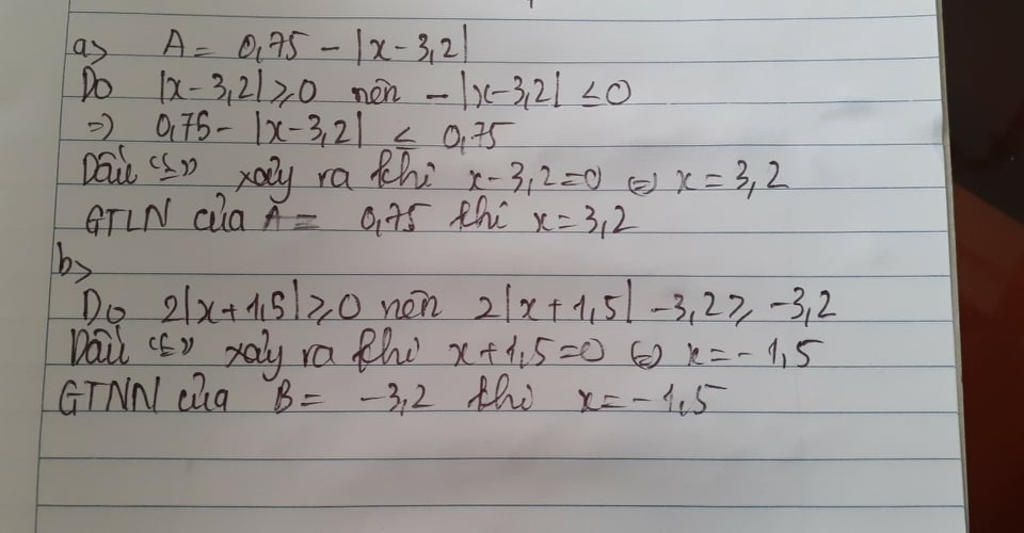 a> A = 0,75 - |x - 3,2|
Do |x - 3,2| ≥ 0 nên - |x - 3,2| ≤ 0
=> 0,75 - |x - 3,2| ≤ 0,75
Dấu "≤" xảy ra khi x - 3,2 = 0 ⇔ x = 3,2
GTLN của A = 0,75 khi x = 3,2
b>
Do 2|x + 1,5| ≥ 0 nên 2|x + 1,5| - 3,2 ≥ -3,2
Dấu "≤" xảy ra khi x + 1,5 = 0 ⇔ x = - 1,5
GTNN của B = -3,2 khi x = - 1,5